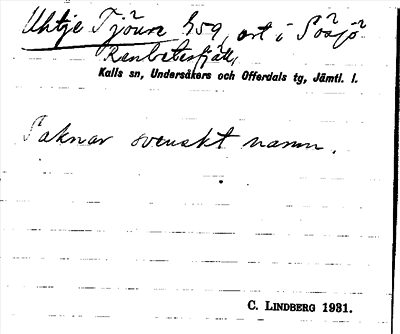 Uhtje Tjåure 959, ort i Sösjö
Renbetesfjäll,
Kalls sn, Undersåkers och Offerdals tg, Jämtl. l.
Saknar svenskt namn.
C. LINDBERG 1931.